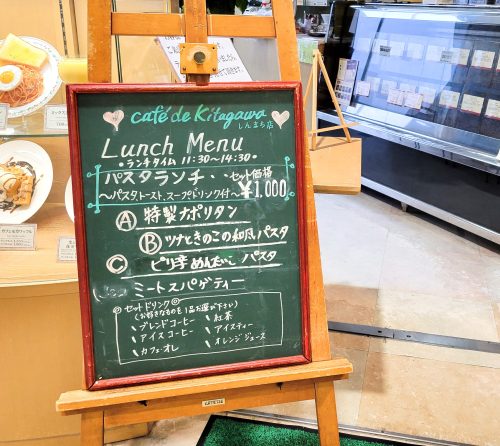 café de Kitagawa
しんまち店
Lunch Menu
・ランチタイム 11:30~14:30・
パスタランチ・・セット価格
~パスタ・トースト、スープ・ドリンク付~ ¥1,000
Ⓐ 特製ナポリタン
Ⓑ ツナときのこの和風パスタ
Ⓒ ピリ辛めんたいこパスタ
ミートスパゲティー
◎セットドリンク◎
(お好きなものを1品お選び下さい)
・ブレンドコーヒー ・紅茶
・アイスコーヒー ・アイスティー
・カフェ・オレ ・オレンジジュース